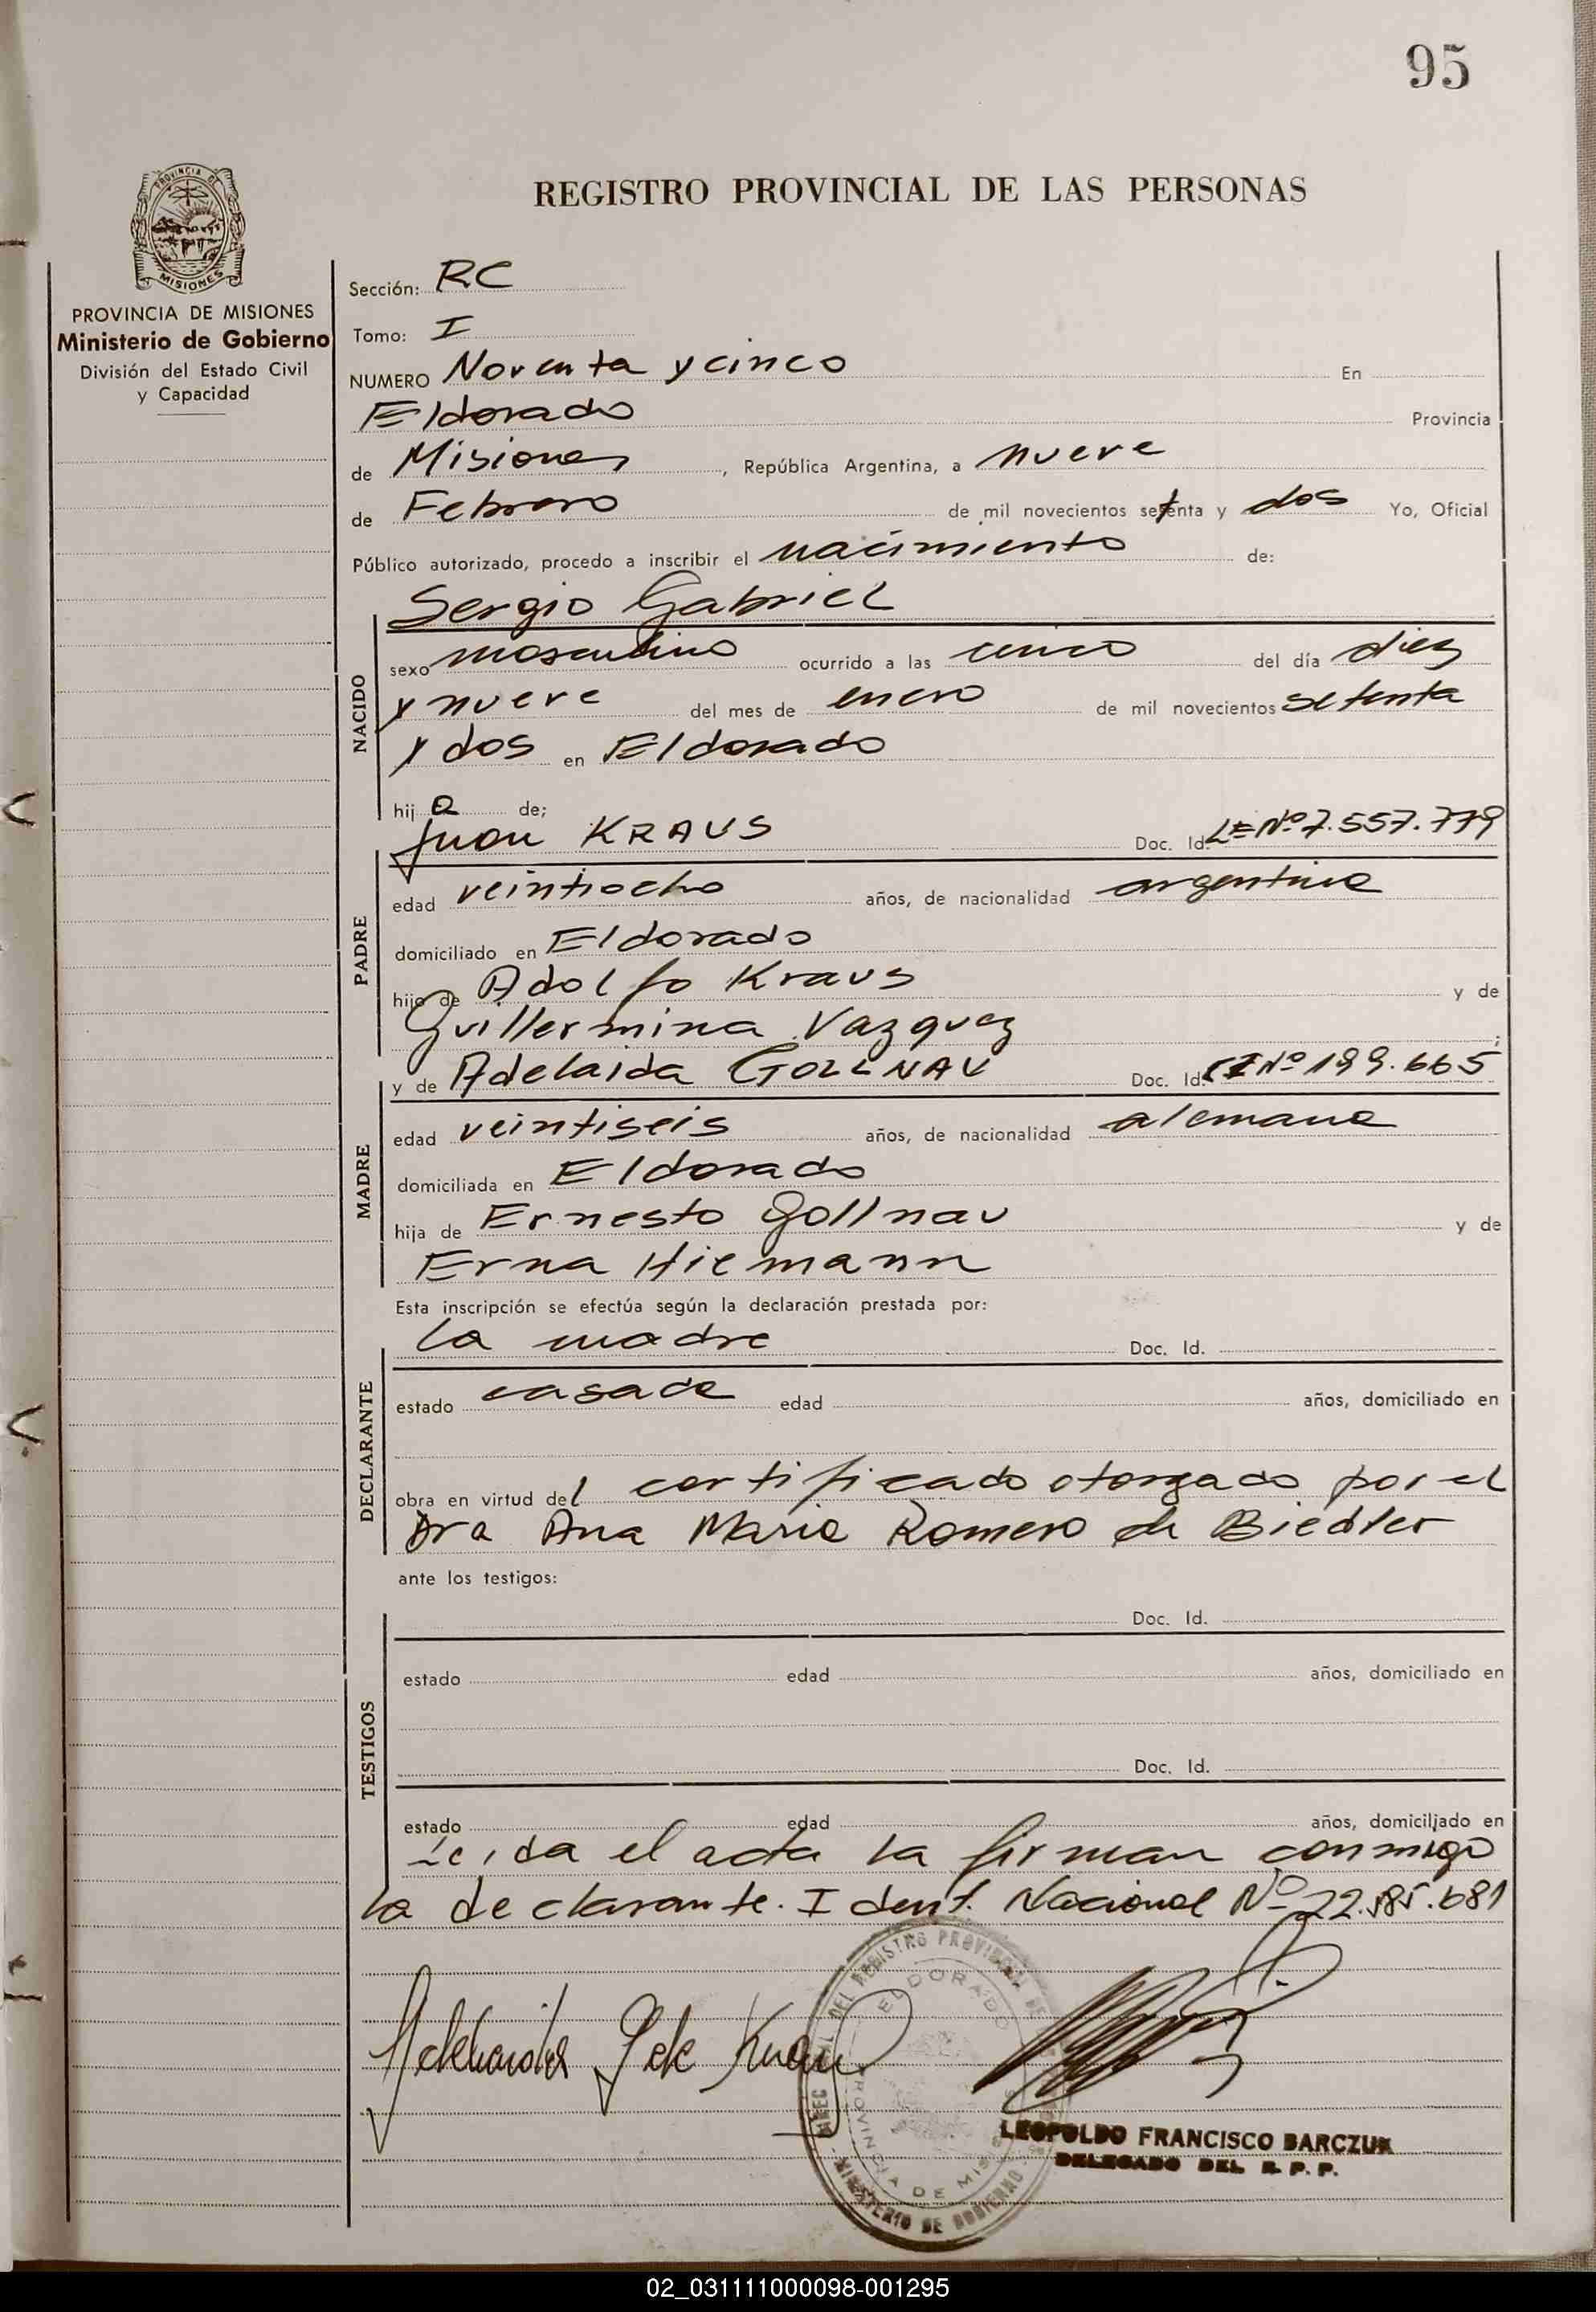 95
REGISTRO PROVINCIAL DE LAS PERSONAS
PROVINCIA DE MISIONES
PROVINCIA DE MISIONES
Ministerio de Gobierno
División del Estado Civil
y Capacidad
Sección: RC
Tomo: I
NUMERO Noventa y cinco En
Eldorado Provincia
de Misiones, República Argentina, a nueve
de Febrero de mil novecientos setenta y dos Yo, Oficial
Público autorizado, procedo a inscribir el nacimiento de:
Sergio Gabriel
NACIDO
sexo masculino ocurrido a las cinco del día diez
y nueve del mes de enero de mil novecientos setenta
y dos en Eldorado
hijo de;
Juan KRAUS Doc. Id. LE Nº 7.557.779
PADRE
edad veintiocho años, de nacionalidad argentina
domiciliado en Eldorado
hijo de Adolfo Kraus y de
Guillermina Vazquez ;
y de Adelaida GOLLNAU Doc. Id. CI Nº 199.665
MADRE
edad veintiseis años, de nacionalidad alemana
domiciliada en Eldorado
hija de Ernesto Gollnau y de
Erna Hiemann
Esta inscripción se efectúa según la declaración prestada por:
la madre Doc. Id.
DECLARANTE
estado casada edad años, domiciliado en
obra en virtud del certificado otorgado por el
Dra Ana Maria Romero de Biedler
ante los testigos:
Doc. Id.
TESTIGOS
estado edad años, domiciliado en
Doc. Id.
estado edad años, domiciliado en
Leida el acta la firman conmigo
la declarante. Ident. Nacional Nº 22.585.681
ELDORADO
PROVINCIA DE MISIONES
MINISTERIO DE GOBIERNO
LEOPOLDO FRANCISCO BARCZUK
DELEGADO DEL R. P. P.
02_031111000098-001295